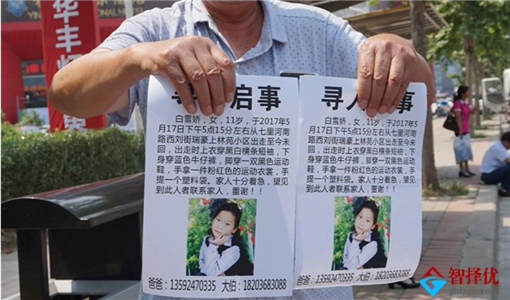 华丰
寻 启事
白雪娇，女，11岁，于2017年5
月17日下午5点15分左右从七里河南
路西刘街瑞豪上林苑小区出走至今未
回，出走时上衣穿黑白横条短袖，下
身穿蓝色牛仔裤，脚穿一双黑色运动
鞋，手拿一件粉红色的运动衣装，手
提一个塑料袋。家人十分着急，望见
到此人者联系家人，重谢！！
爸爸：13592470335 大伯：18203683088
寻人 事
白雪娇，女，11岁，于2017年5
月17日下午5点15分左右从七里河南
路西刘街瑞豪上林苑小区出走至今未
回，出走时上衣穿黑白横条短袖，下
身穿蓝色牛仔裤，脚穿一双黑色运动
鞋，手拿一件粉红色的运动衣装，手
提一个塑料袋。家人十分着急，望见
到此人者联系家人，重谢！！
爸爸：13592470335 大伯：18203683088
智择优